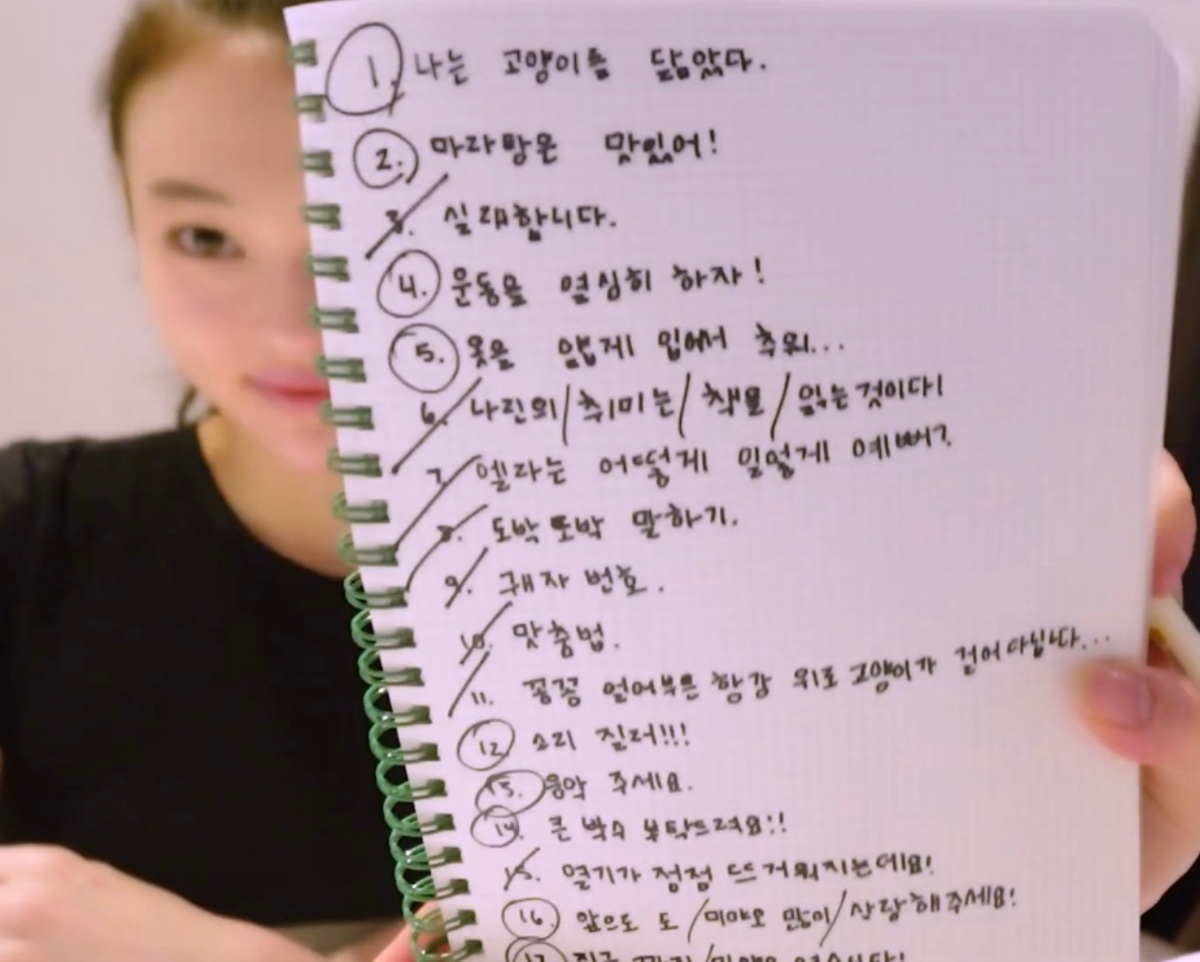 1. 나는 고양이를 닮았다.
2. 마라탕은 맛있어!
3. 실래합니다.
4. 운동을 열심히 하자!
5. 옷을 얇게 입어서 추워...
6. 나린의/취미는/책을/읽는것이다!
7. 엘라는 어떻게 일얼게 예뻐?
8. 도박 또박 말하기.
9. 궤자 번호.
10. 맞춤법.
11. 꽁꽁 얼어부튼 항강 위로 고양이가 걸어다닙니다...
12. 소리 질러!!!
13. 음악 주세요.
14. 큰 박수 부탁드려요!!
15. 열기가 정점 뜨거워지는데요!
16. 앞으도 도/미야오 많이/사랑해주세요!
17. 지금 까지/미야오